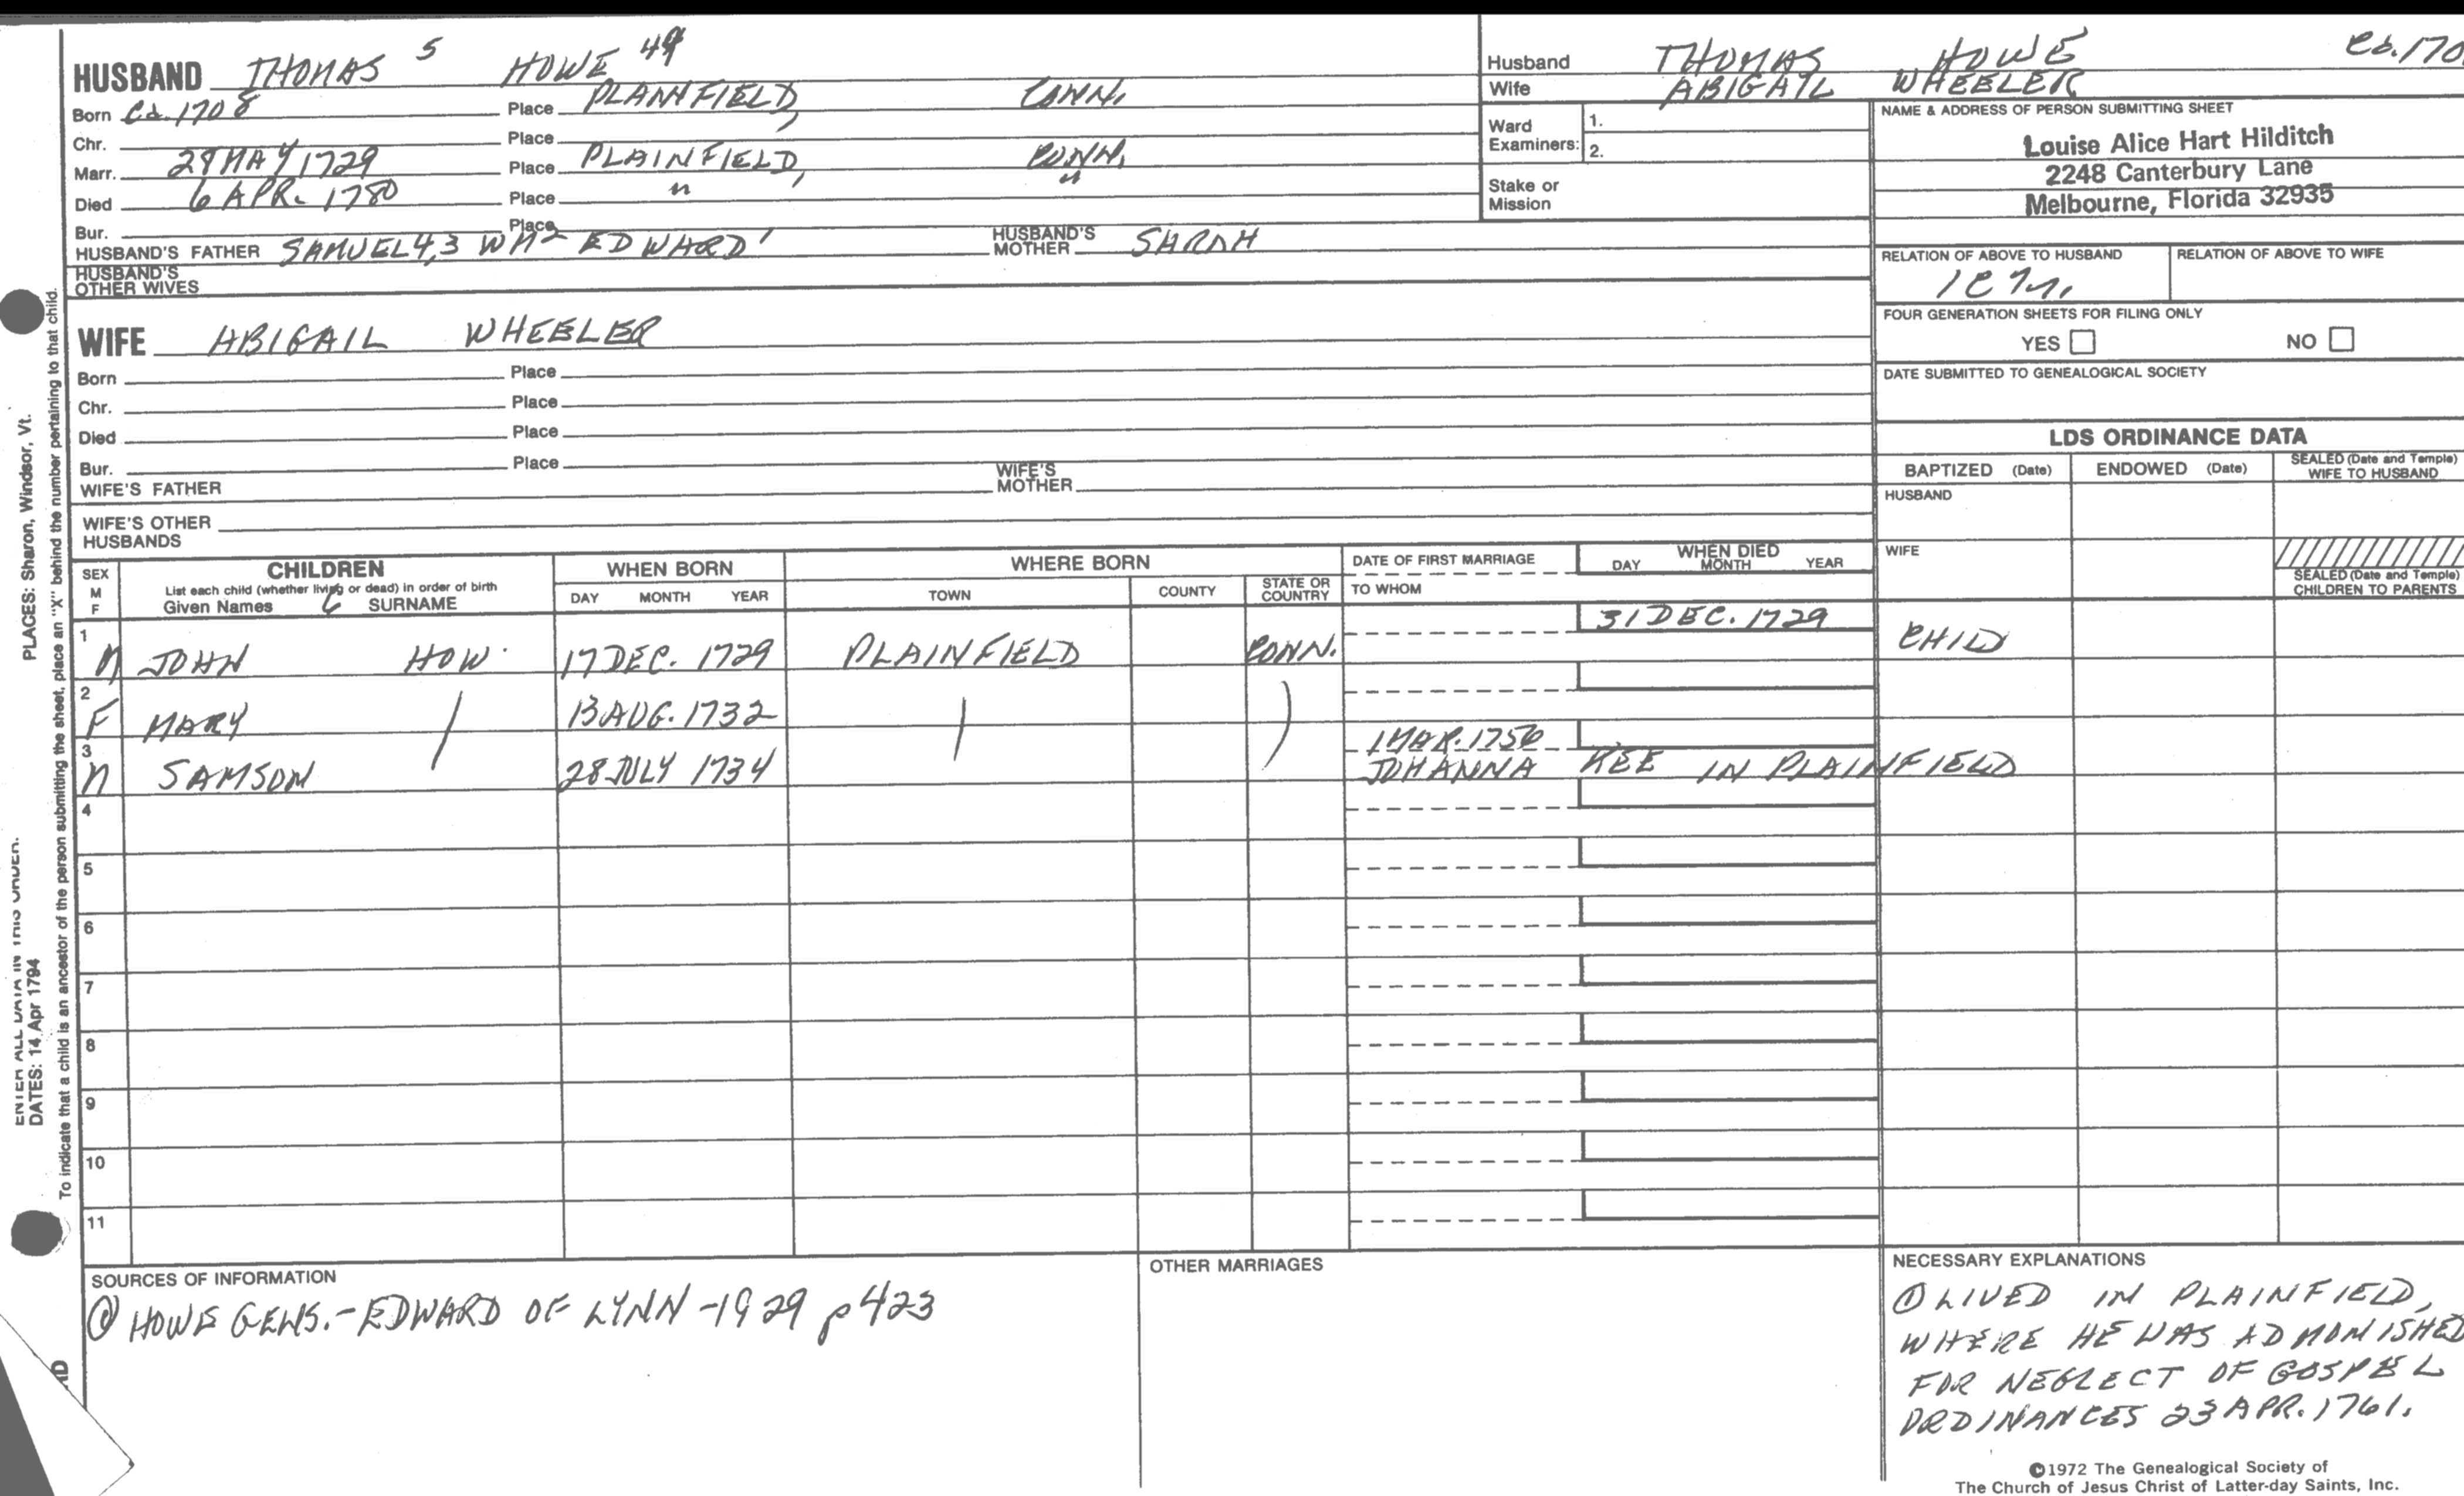 HUSBAND THOMAS 5 HOWE 49
Born Ca. 1708 Place PLAINFIELD, CONN.
Chr. Place
Marr. 28 MAY 1729 Place PLAINFIELD, CONN.
Died 6 APR. 1780 Place " "
Bur. Place
HUSBAND'S FATHER SAMUEL 4,3 WM 2 EDWARD 1 HUSBAND'S MOTHER SARAH
HUSBAND'S OTHER WIVES
WIFE ABIGAIL WHEELER
Born Place
Chr. Place
Died Place
Bur. Place
WIFE'S FATHER WIFE'S MOTHER
WIFE'S OTHER HUSBANDS
Husband THOMAS HOWE Cb. 170
Wife ABIGAIL WHEELER
Ward Examiners: 1.
2.
Stake or Mission
NAME & ADDRESS OF PERSON SUBMITTING SHEET
Louise Alice Hart Hilditch
2248 Canterbury Lane
Melbourne, Florida 32935
RELATION OF ABOVE TO HUSBAND RELATION OF ABOVE TO WIFE
FOUR GENERATION SHEETS FOR FILING ONLY
YES NO
DATE SUBMITTED TO GENEALOGICAL SOCIETY
LDS ORDINANCE DATA
BAPTIZED (Date) ENDOWED (Date) SEALED (Date and Temple) WIFE TO HUSBAND
HUSBAND
WIFE
SEALED (Date and Temple) CHILDREN TO PARENTS
SEX M F
CHILDREN
List each child (whether living or dead) in order of birth
Given Names 6 SURNAME
WHEN BORN
DAY MONTH YEAR
WHERE BORN
TOWN COUNTY STATE OR COUNTRY
DATE OF FIRST MARRIAGE
TO WHOM
WHEN DIED
DAY MONTH YEAR
1 M JOHN HOW 17 DEC. 1729 PLAINFIELD CONN. 31 DEC. 1729 CHILD
2 F MARY 13 AUG. 1732
3 M SAMSON 28 JULY 1734 1 MAR. 1756
JOHANNA KEE IN PLAINFIELD
4
5
6
7
8
9
10
11
SOURCES OF INFORMATION
① HOWE GENS. - EDWARD OF LYNN - 1929 p 423
OTHER MARRIAGES
NECESSARY EXPLANATIONS
① LIVED IN PLAINFIELD,
WHERE HE WAS ADMONISHED
FOR NEGLECT OF GOSPEL
ORDINANCES 23 APR. 1761.
©1972 The Genealogical Society of
The Church of Jesus Christ of Latter-day Saints, Inc.
ENTER ALL DATA IN THIS ORDER.
DATES: 14 Apr 1794 PLACES: Sharon, Windsor, Vt.
To indicate that a child is an ancestor of the person submitting the sheet, place an "X" behind the number pertaining to that child.